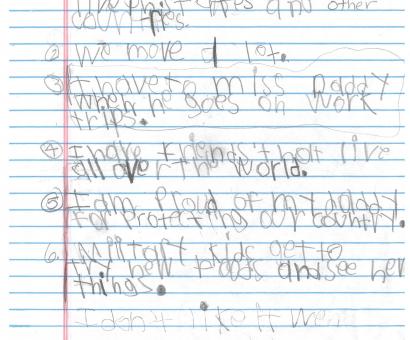 and other
countries.
② We move a lot.
③ I have to miss Daddy
when he goes on work
trips.
④ I have friends that live
all over the world.
⑤ I am proud of my daddy
for protecting our country.
6. Military kids get to
try new foods and see new
things.
I don't like it